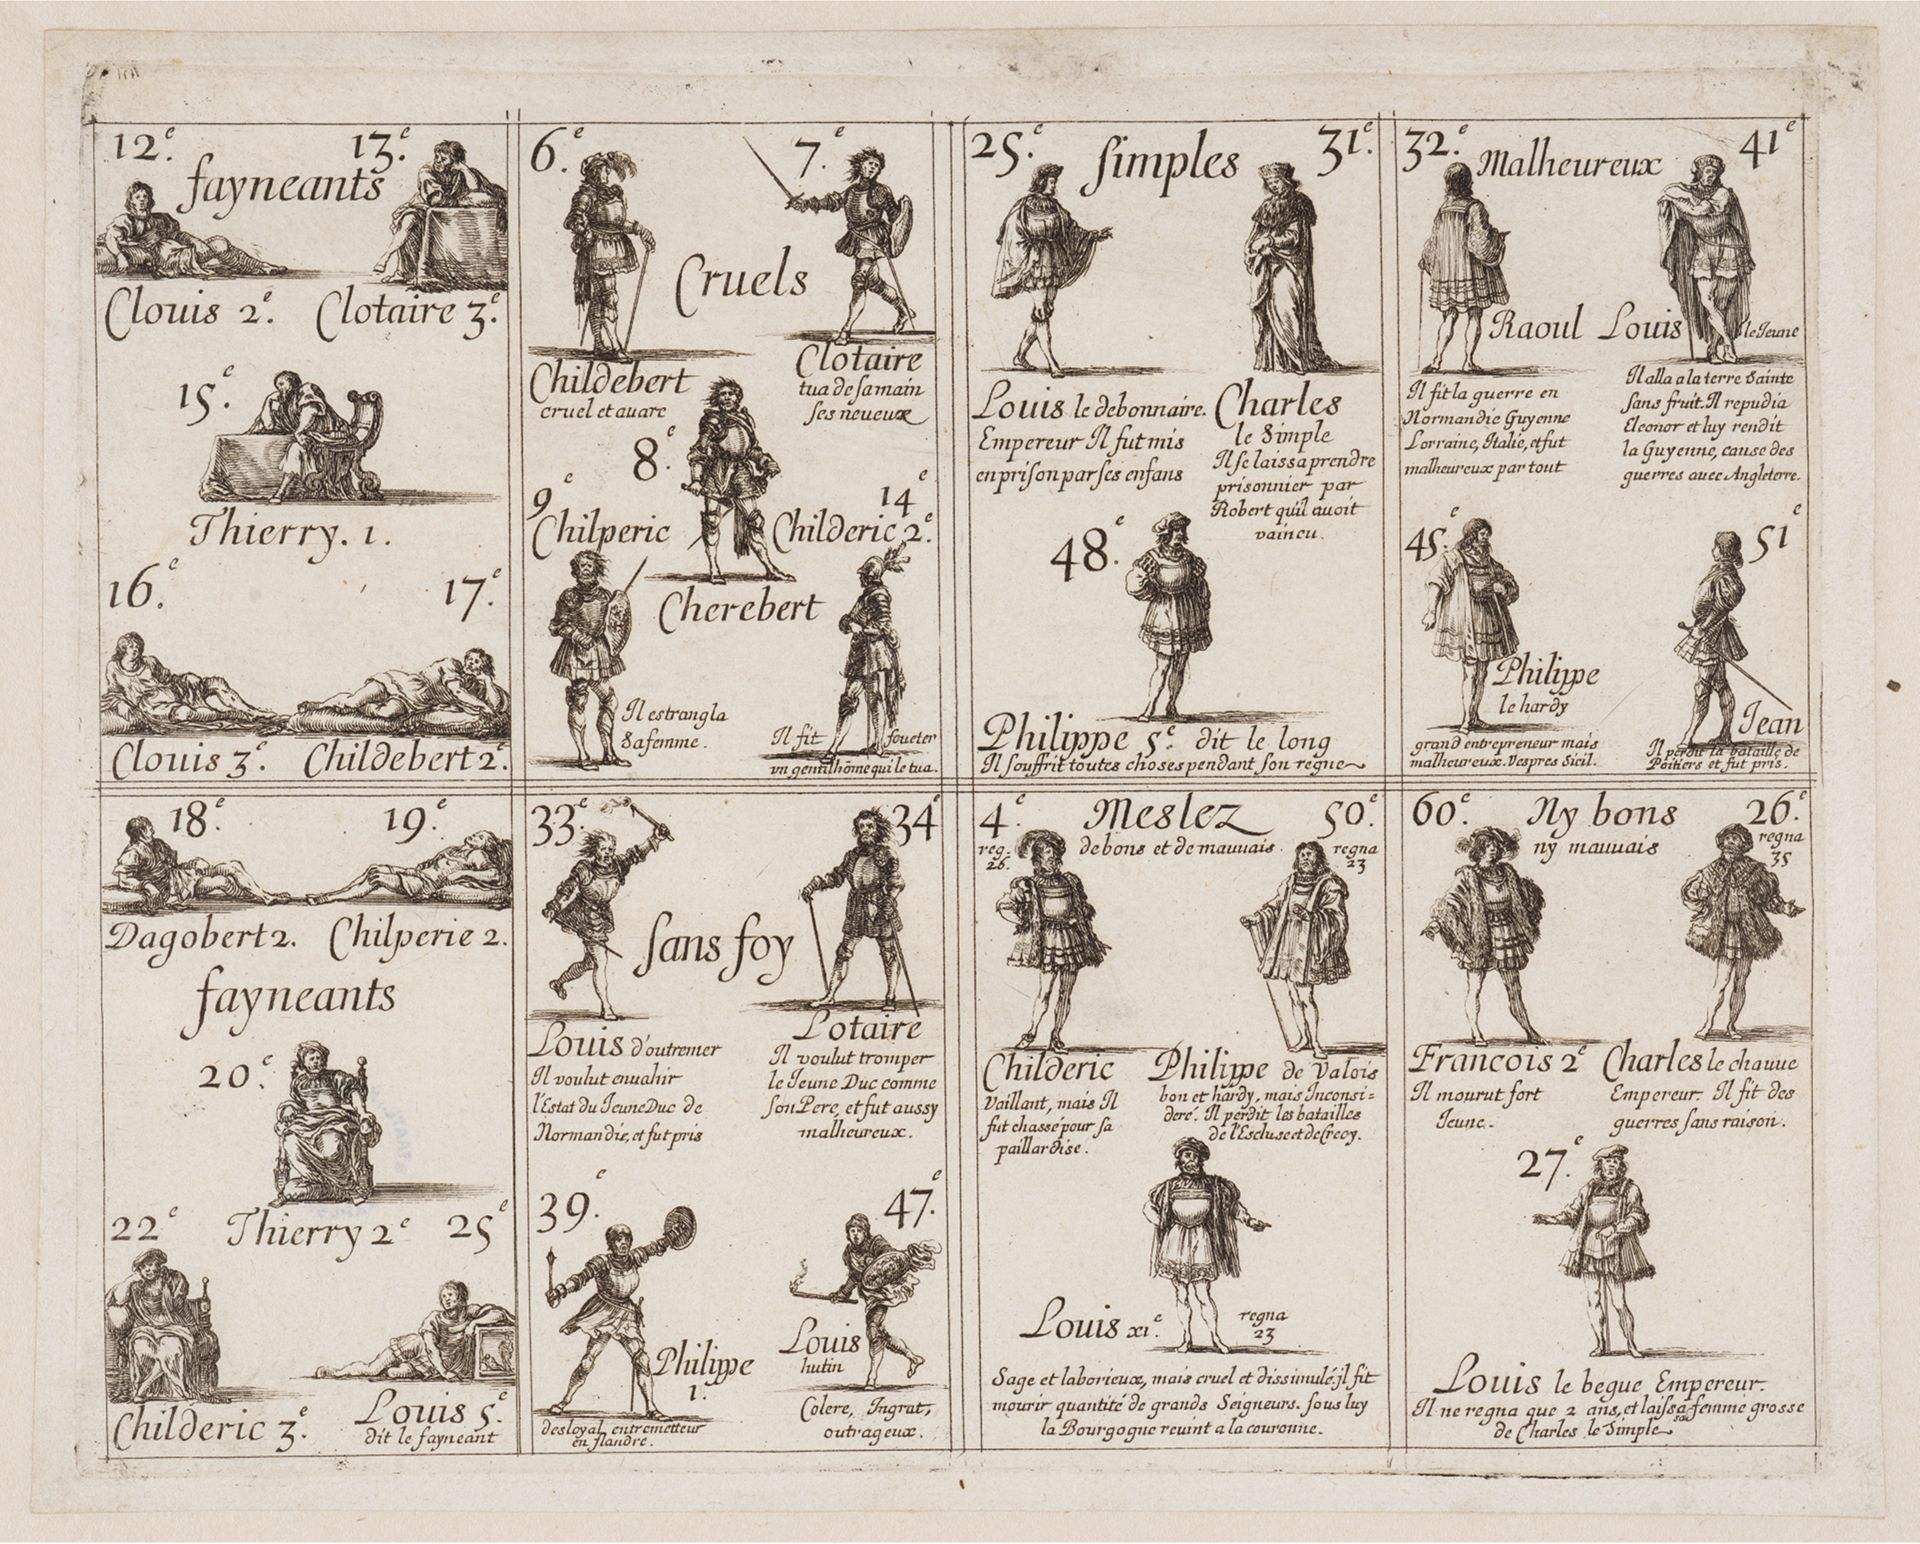 12.e 13.e
fayneants
Clouis 2.e Clotaire 3.e
15.e
Thierry. 1.
16.e 17.e
Clouis 3.e Childebert 2.e
6.e 7.e
Cruels
Childebert
cruel et auare
Clotaire
tua de sa main
ses neueux
8.e
9.e 14.e
Chilperic Childeric 2.e
Cherebert
Il estrangla
sa femme.
Il fit foueter
un gentilhōme qui le tua.
25.e 31.e
simples
Louis le debonnaire.
Empereur Il fut mis
en prison par ses enfans
Charles
le Simple
Il se laissa prendre
prisonnier par
Robert qu'il auoit
vaincu.
48.e
Philippe 5.e dit le long
Il souffrit toutes choses pendant son regne
32.e 41.e
Malheureux
Raoul
Il fit la guerre en
Normandie Guyenne
Lorraine, Italie, et fut
malheureux par tout
Louis le Jeune
Il alla a la terre Sainte
sans fruit. Il repudia
Eleonor et luy rendit
la Guyenne, cause des
guerres auec Angleterre.
45.e 51.e
Philippe
le hardy
grand entrepreneur mais
malheureux. Vespres Sicil.
Jean
Il perdit la bataille de
Poitiers et fut pris.
18.e 19.e
Dagobert 2. Chilperic 2.
fayneants
20.e
Thierry 2.e
22.e 25.e
Childeric 3.e
Louis 5.e
dit le fayneant
33.e 34.e
sans foy
Louis d'outremer
Il voulut enuahir
l'Estat du Jeune Duc de
Normandie, et fut pris
Lotaire
Il voulut tromper
le Jeune Duc comme
son Pere, et fut aussy
malheureux.
39.e 47.e
Philippe
1.
desloyal entremetteur
en flandre.
Louis
hutin
Colere, Ingrat,
outrageux.
4.e 50.e
Meslez
de bons et de mauuais.
reg.
26.
regna
23
Childeric
Vaillant, mais Il
fut chassé pour sa
paillardise.
Philippe de Valois
bon et hardy, mais Inconsi=
deré. Il perdit les batailles
de l'Escluse et de Crecy.
Louis xi.e
regna
23
Sage et laborieux, mais cruel et dissimulé. jl fit
mourir quantité de grands Seigneurs. sous luy
la Bourgogne reuint a la couronne.
60.e 26.e
Ny bons
ny mauuais
regna
35
Francois 2.e
Il mourut fort
Jeune.
Charles le chauue
Empereur. Il fit des
guerres sans raison.
27.e
Louis le begue Empereur.
Il ne regna que 2 ans, et laissa sa femme grosse
de Charles le Simple